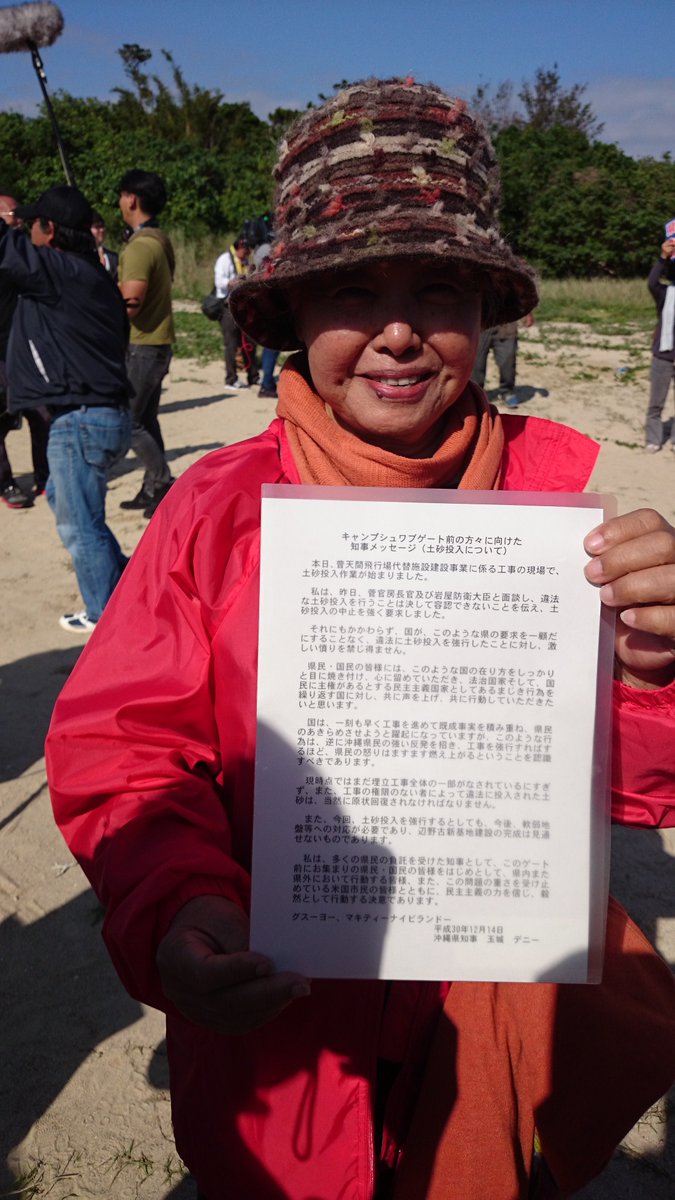 キャンプシュワブゲート前の方々に向けた
知事メッセージ（土砂投入について）
本日、普天間飛行場代替施設建設事業に係る工事の現場で、
土砂投入作業が始まりました。
私は、昨日、菅官房長官及び岩屋防衛大臣と面談し、違法
な土砂投入を行うことは決して容認できないことを伝え、土
砂投入の中止を強く要求しました。
にもかかわらず、国が、このような県の要求を一顧だ
にすることなく、違法に土砂投入を強行したことに対し、激
しい憤りを禁じ得ません。
県民・国民の皆様には、このような国の在り方をしっかり
と目に焼き付け、心に留めていただき、法治国家そして、国
民に主権があるとする民主主義国家としてあるまじき行為を
繰り返す国に対し、共に声を上げ、共に行動していただきた
いと思います。
国は、一刻も早く工事を進めて既成事実を積み重ね、県民
のあきらめさせようと躍起になっていますが、このような行
為は、逆に沖縄県民の強い反発を招き、工事を強行すればす
るほど、県民の怒りはますます燃え上がるということを認識
すべきであります。
現時点ではまだ埋立工事全体の一部がなされているにすぎ
ず、また、工事の権限のない者によって違法に投入された土
砂は、当然に原状回復されなければなりません。
また、今回、土砂投入を強行するとしても、今後、軟弱地
盤等への対応が必要であり、辺野古新基地建設の完成は見通
せないものであります。
私は、多くの県民の負託を受けた知事として、このゲート
前にお集まりの県民・国民の皆様をはじめとして、県内また
県外において行動する皆様、また、この問題の重さを受け止
めている米国市民の皆様とともに、民主主義の力を信じ、毅
然として行動する決意であります。
グスーヨー、マキティーナイビランドー
平成30年12月14日
沖縄県知事　玉城　デニー